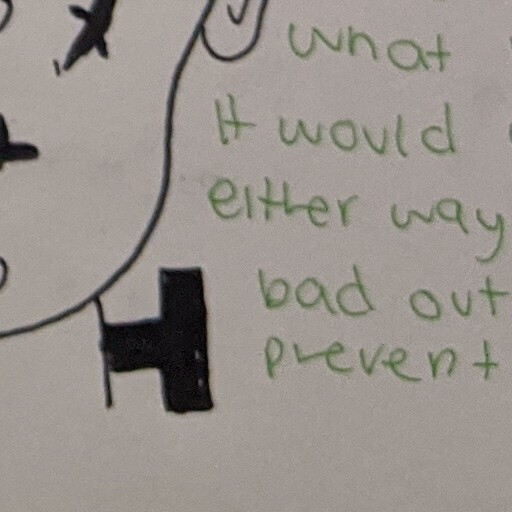 what
It would
either way
bad out
prevent